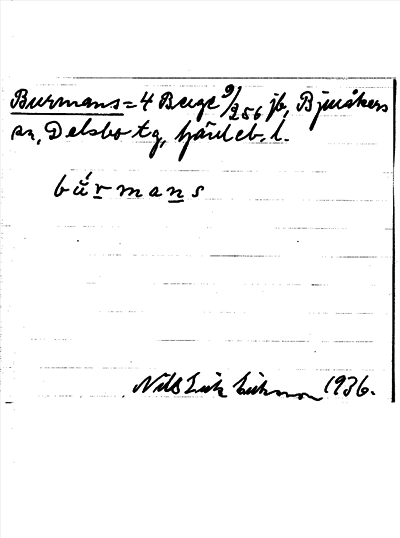 Burmans = 4 Berge 9/256 jb, Bjuråkers
sn, Delsbo tg, Gävleb. l.
bu̇́rmans
Nils Erik Eriksson 1936.